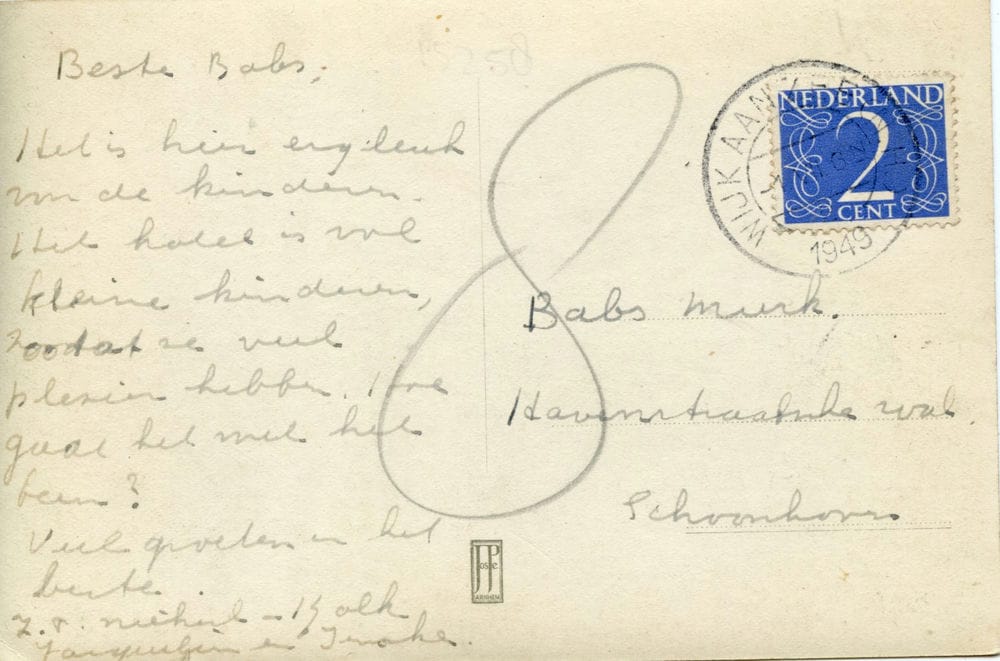 Beste Babs,
Het is hier erg leuk
van de kinderen.
Het hotel is vol
kleine kinderen,
zoodat ze veel
plezier hebben. Hoe
gaat het met het
been?
Veel groeten en het
beste.
Kolk
en Ineke.
8
WIJK AAN ZEE
1949
NEDERLAND
2
CENT
Babs Murk.
Havenstraatsche wal
Schoonhoven
JP
oste
ARNHEM